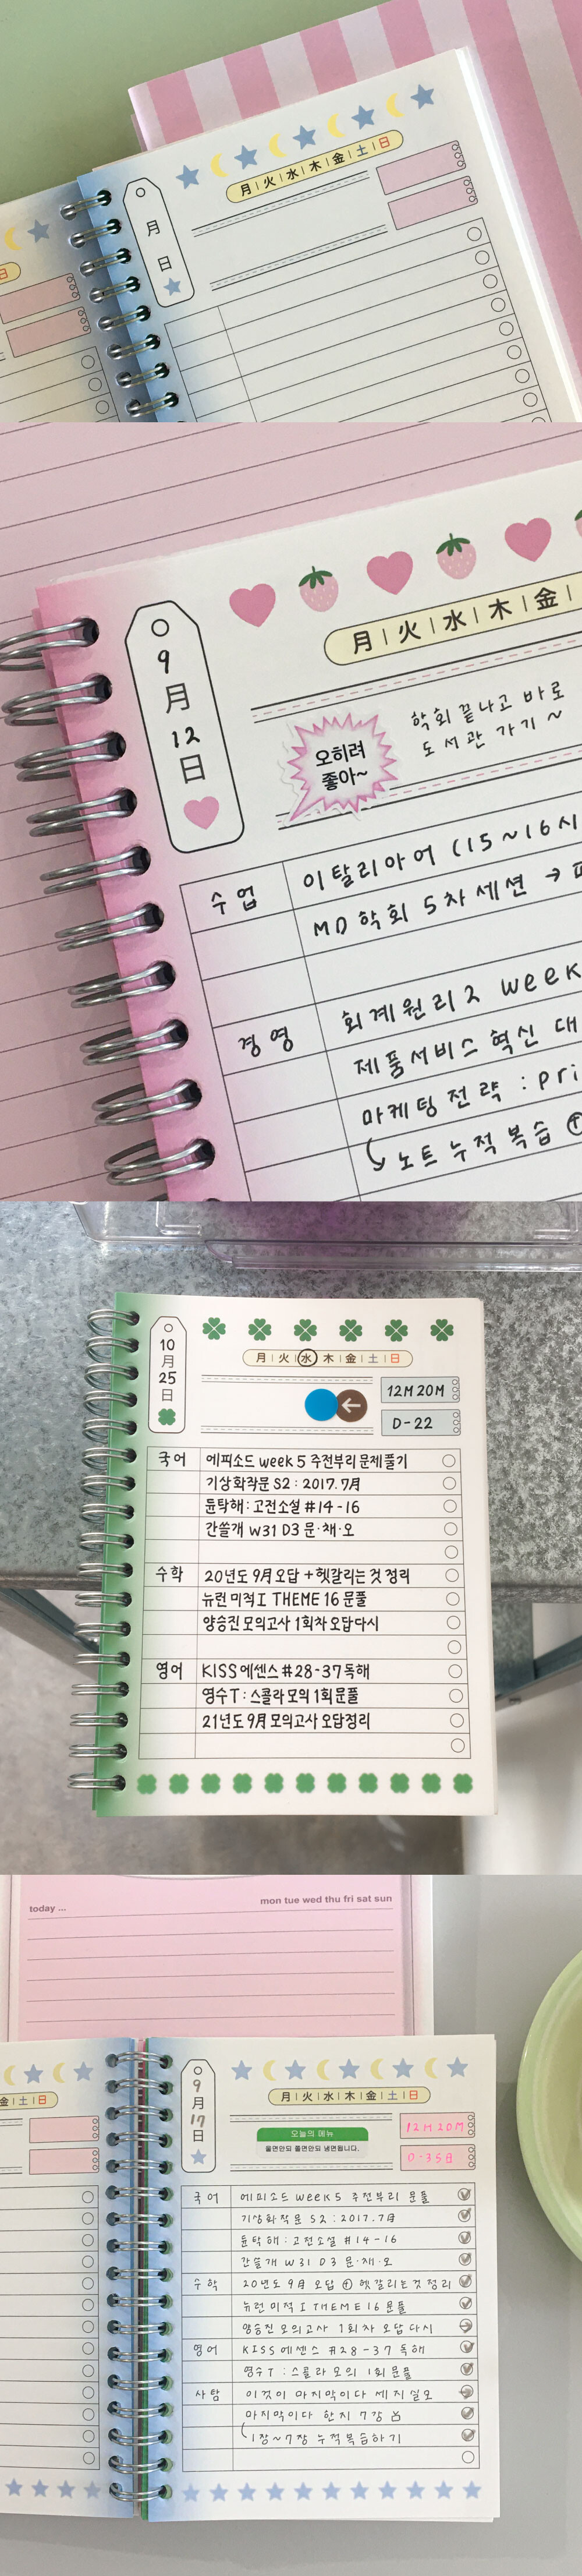 月 | 火 | 水 | 木 | 金 | 土 | 日
月
日
日
月 | 火 | 水 | 木 | 金
9
月
12
日
오히려
좋아~
학회 끝나고 바로
도서관 가기 ~
수업 이탈리아어 (15~16시
MD 학회 5차 세션 →
경영 회계원리2 week
제품서비스 혁신 대
마케팅 전략 : pri
노트 누적 복습 ⊕
10
月
25
日
月 | 火 | 水 | 木 | 金 | 土 | 日
12H 20M
D-22
국어 에피소드 week 5 주전부리 문제풀기
기상화작문 S2 : 2017. 7月
윤탁해 : 고전소설 #14-16
간쓸개 W31 D3 문·채·오
수학 20년도 9月 오답 + 헷갈리는 것 정리
뉴런 미적 I THEME 16 문풀
양승진 모의고사 1회차 오답다시
영어 KISS 에센스 #28-37 독해
영수T : 스콜라 모의 1회 문풀
21년도 9月 모의고사 오답정리
today ...
mon tue wed thu fri sat sun
金 | 土 | 日
9
月
17
日
月 | 火 | 水 | 木 | 金 | 土 | 日
오늘의 메뉴
울면안되 쫄면안되 냉면됩니다.
12H 20M
D-35日
국어 에피소드 week 5 주전부리 문풀
기상화작문 S2 : 2017. 7月
윤탁해 : 고전소설 #14-16
간쓸개 W31 D3 문·채·오
수학 20년도 9月 오답 ⊕ 헷갈리는 것 정리
뉴런 미적 I THEME 16 문풀
양승진 모의고사 1회차 오답 다시
영어 KISS 에센스 #28-37 독해
영수T : 스콜라 모의 1회 문풀
사탐 이것이 마지막이다 세지 실모
마지막이다 한지 7강
1장~7장 누적복습하기